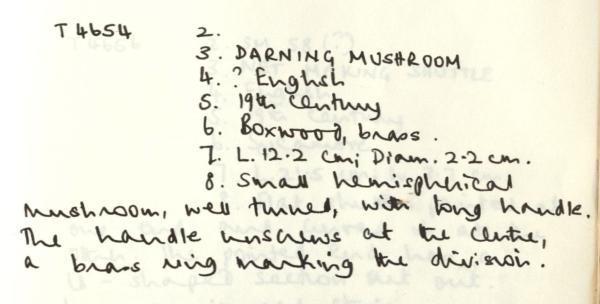 T4654 2.
3. DARNING MUSHROOM
4. ? English
5. 19th Century
6. Boxwood, brass.
7. L. 12.2 cm; Diam. 2.2 cm.
8. Small hemispherical
mushroom, well turned, with long handle.
The handle unscrews at the centre,
a brass ring marking the division.